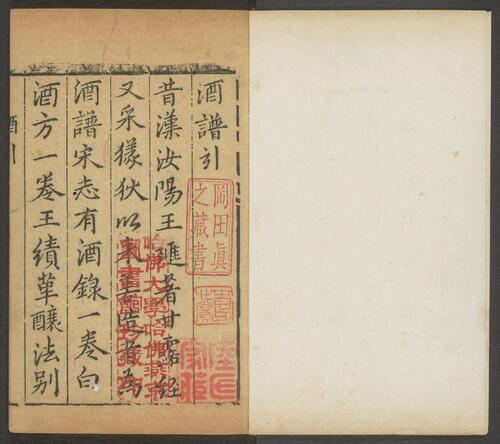 酒譜引
昔漢汝陽王璡著甘露經
又采狄以來善造者為
酒譜宋志有酒錄一卷白
酒方一卷王績革釀法別
岡田眞
之藏書
哈佛大學哈佛燕京
圖書館珍藏印